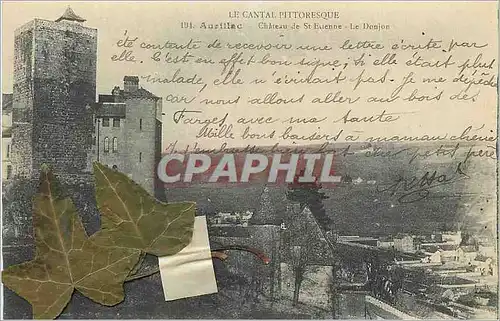 LE CANTAL PITTORESQUE
191. Aurillac Château de St Etienne - Le Donjon
été contente de recevoir une lettre écrite par
elle. C'est en effet bon signe, si elle était plus
malade, elle n'écrivait pas - Je me dépêche
car nous allons aller au bois des
Farges avec ma tante
Mille bons baisers à maman chérie
CPARAMA
petit père